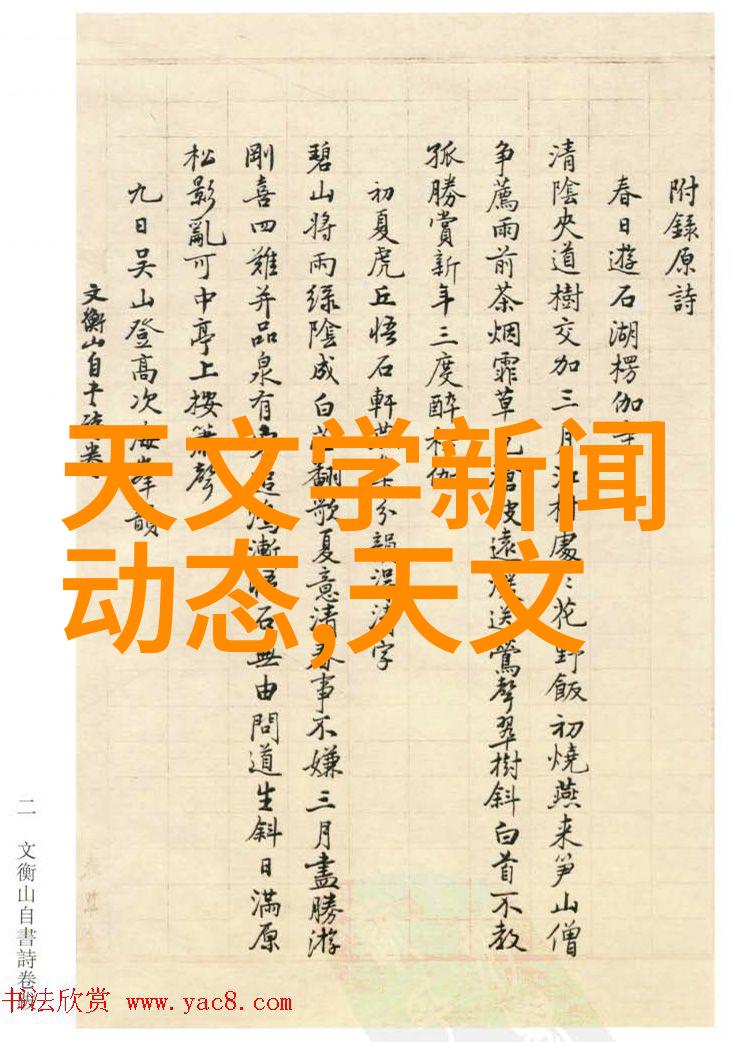 附錄原詩
春日遊石湖楞伽
清陰夾道樹交加三月江村處〻花野飯初燒燕来笋山僧
争薦雨前茶烟霏草色碧波遠送鶯聲翠樹斜白首不教
孤勝賞新年三度醉楞伽
初夏虎丘悟石軒分韻清字
碧山將雨綠陰成白翻歌夏意清春事不嫌三月盡勝游
剛喜四難并品泉有追鴻漸悟石無由問道生斜日滿原
松影亂可中亭上按簫聲
九日吳山登高次海峰韻
文衡山自書詩卷
天文学新闻
动态,天文
二 文衡山自書詩卷跋
书法欣赏 www.yac8.com